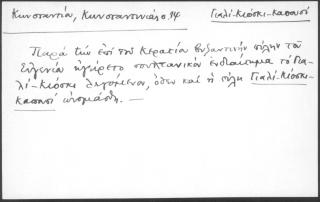 Κωνσταντία, Κωνσταντινιάς 14 Γιαλί-Κιόσκ-Καπουσί
Παρά την επί του Κερατίου βυζαντινήν πύλην του
Ευγενίου ηγείρετο σουλτανικόν ενδιαίτημα το Για-
λί-Κιόσκ λεγόμενον, όθεν και η πύλη Γιαλί-Κιόσκ-
Καπουσί ωνομάσθη. —